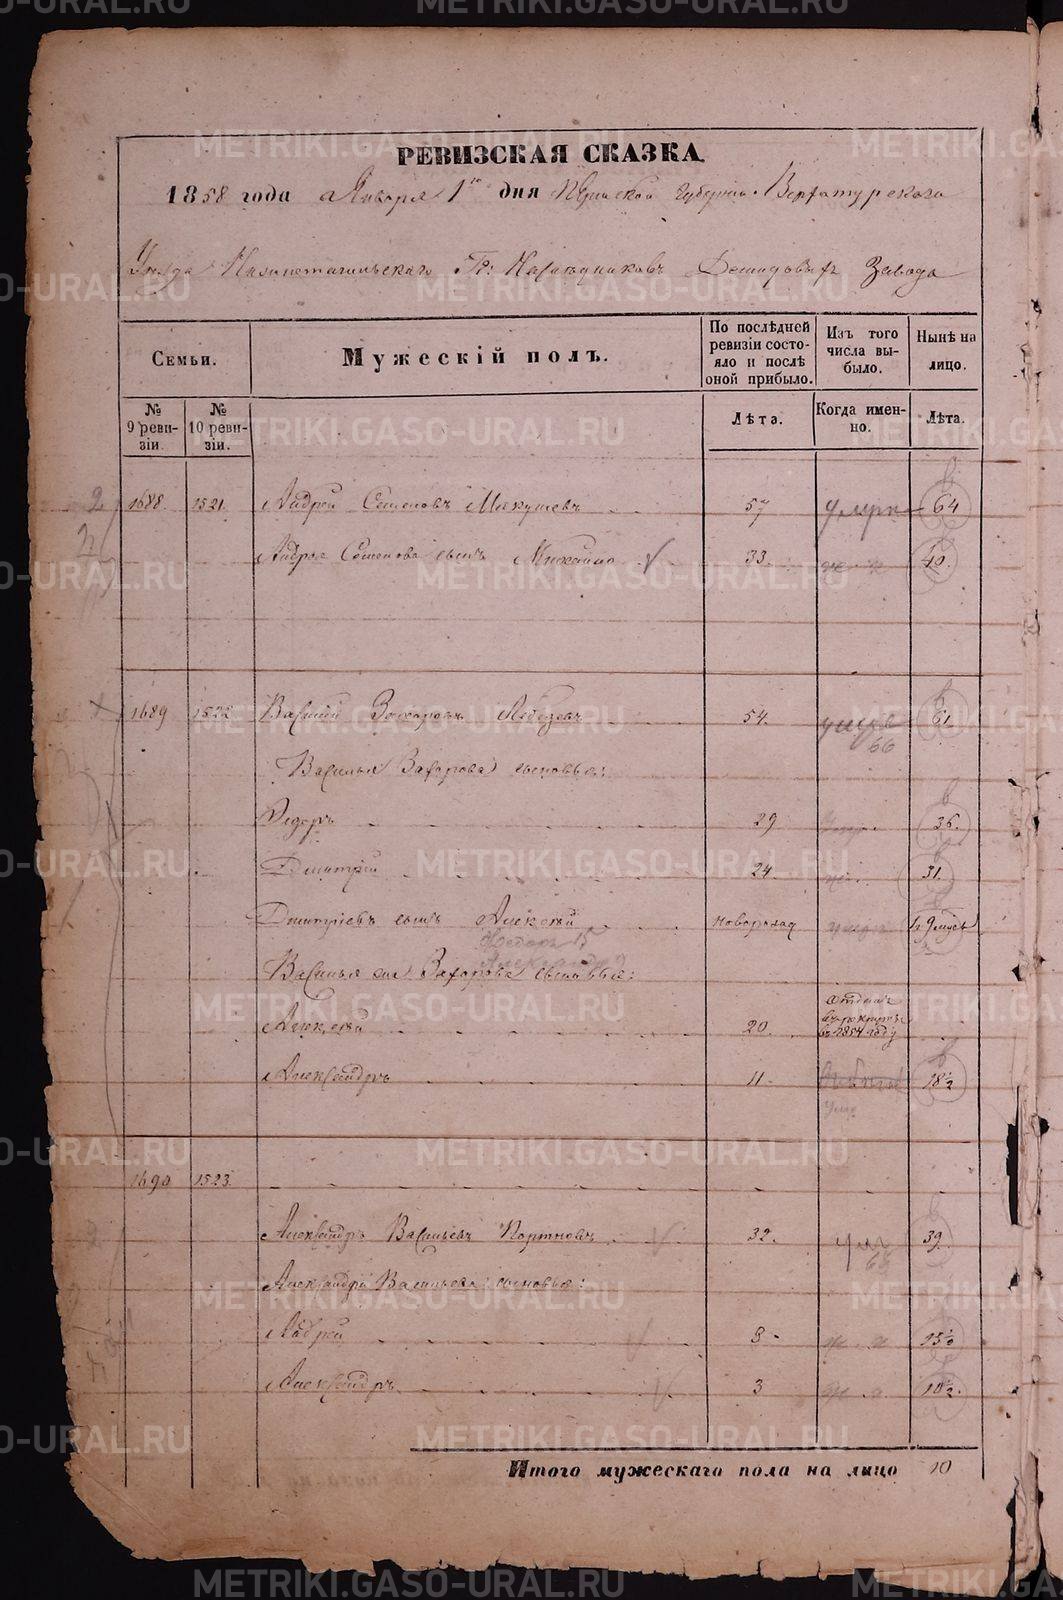 РЕВИЗСКАЯ СКАЗКА
1858 года Января 1го дня Пермской губернiи Верхотурскаго
Уѣзда Нижнетагильскаго Гг: Наслѣдниковъ Демидовыхъ Завода
Семьи.
Мужескiй полъ.
По послѣдней ревизiи состояло и послѣ оной прибыло.
Изъ того числа выбыло.
Нынѣ на лицо.
№ 9 ревизiи.
№ 10 ревизiи.
Лѣта.
Когда именно.
Лѣта.
1688 1521 Андрей Семеновъ Мякушевъ 57 умре 64
Андрея Семенова сынъ Михайло 33 ж. 40
1689 1522 Василiй Захаровъ Лебедевъ 54 умре 66 61
Василья Захарова сыновья:
Федоръ 29 36
Дмитрiй 24 31
Дмитрiевъ сынъ Алексѣй новорожд 9 мцъ
Федоръ 15
Александръ
Василья же Захарова сыновья:
Алексѣй 20 отданъ въ рекруты въ 1854 году
Александръ 11 18½
1690 1523
Александръ Васильевъ Портновъ 32 39
Александра Васильева сыновья:
Андрей 8 15½
Александръ 3 10½
Итого мужескаго пола на лицо 10
METRIKI.GASO-URAL.RU